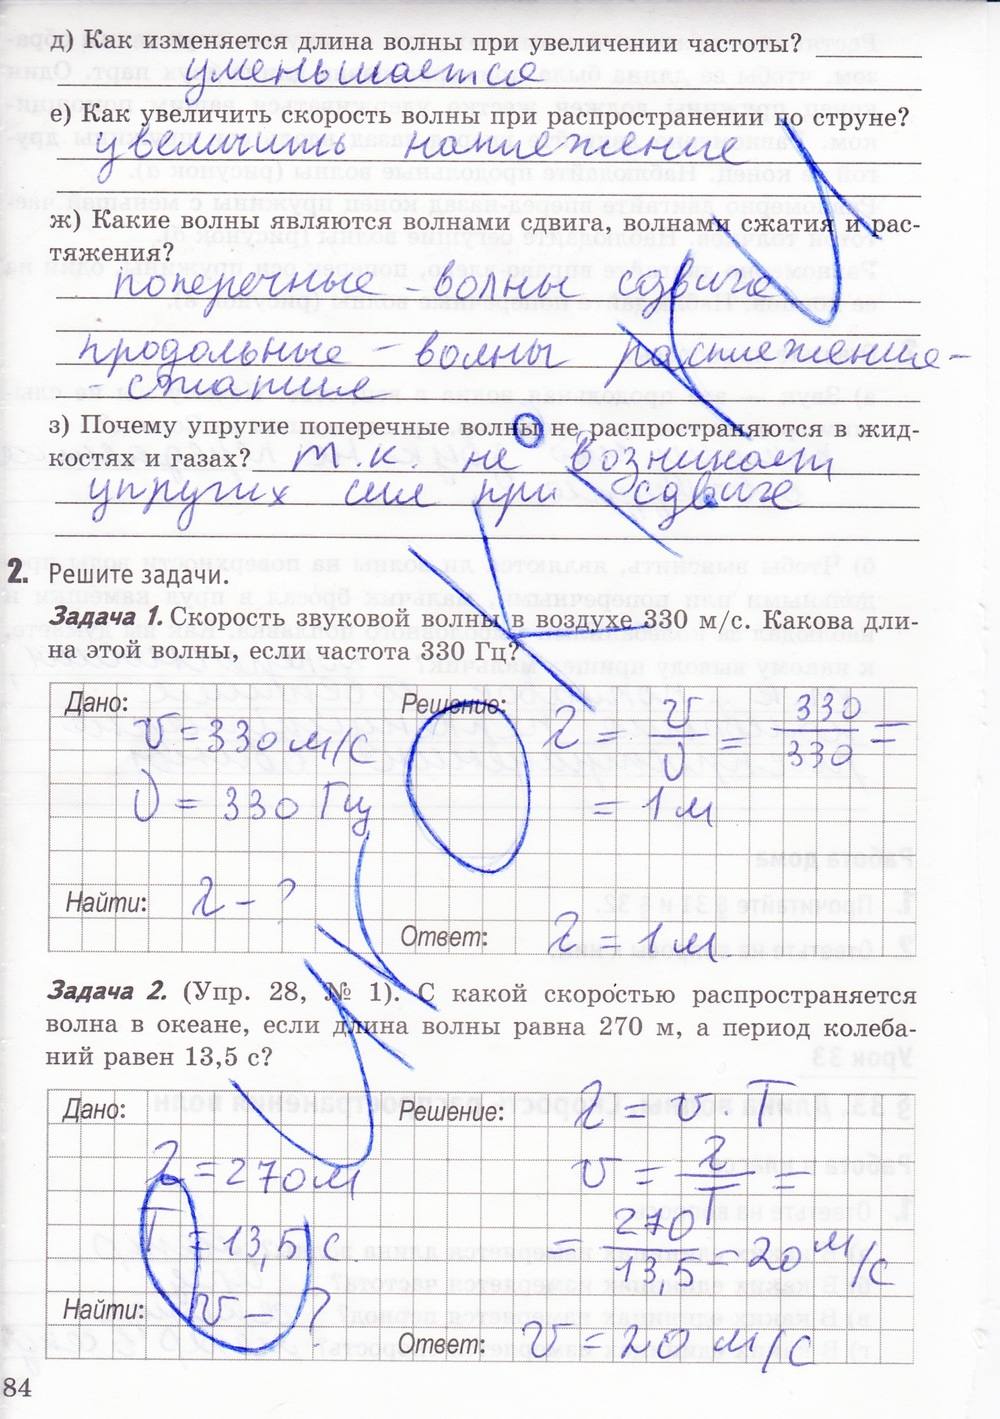 д) Как изменяется длина волны при увеличении частоты?
уменьшается
е) Как увеличить скорость волны при распространении по струне?
увеличить натяжение
ж) Какие волны являются волнами сдвига, волнами сжатия и рас-
тяжения?
поперечные – волны сдвига
продольные – волны растяжение-
- сжатие
з) Почему упругие поперечные волны не распространяются в жид-
костях и газах? т.к. не возникают
упругих сил при сдвиге
2. Решите задачи.
Задача 1. Скорость звуковой волны в воздухе 330 м/с. Какова дли-
на этой волны, если частота 330 Гц?
Дано: Решение: λ = v/ν = 330/330 =
v = 330 м/с
ν = 330 Гц = 1 м
Найти: λ – ?
Ответ: λ = 1 м.
Задача 2. (Упр. 28, № 1). С какой скоростью распространяется
волна в океане, если длина волны равна 270 м, а период колеба-
ний равен 13,5 с?
Дано: Решение: λ = v · T
λ = 270 м v = λ/T =
T = 13,5 с = 270/13,5 = 20 м/с
Найти: v – ?
Ответ: v = 20 м/с
84